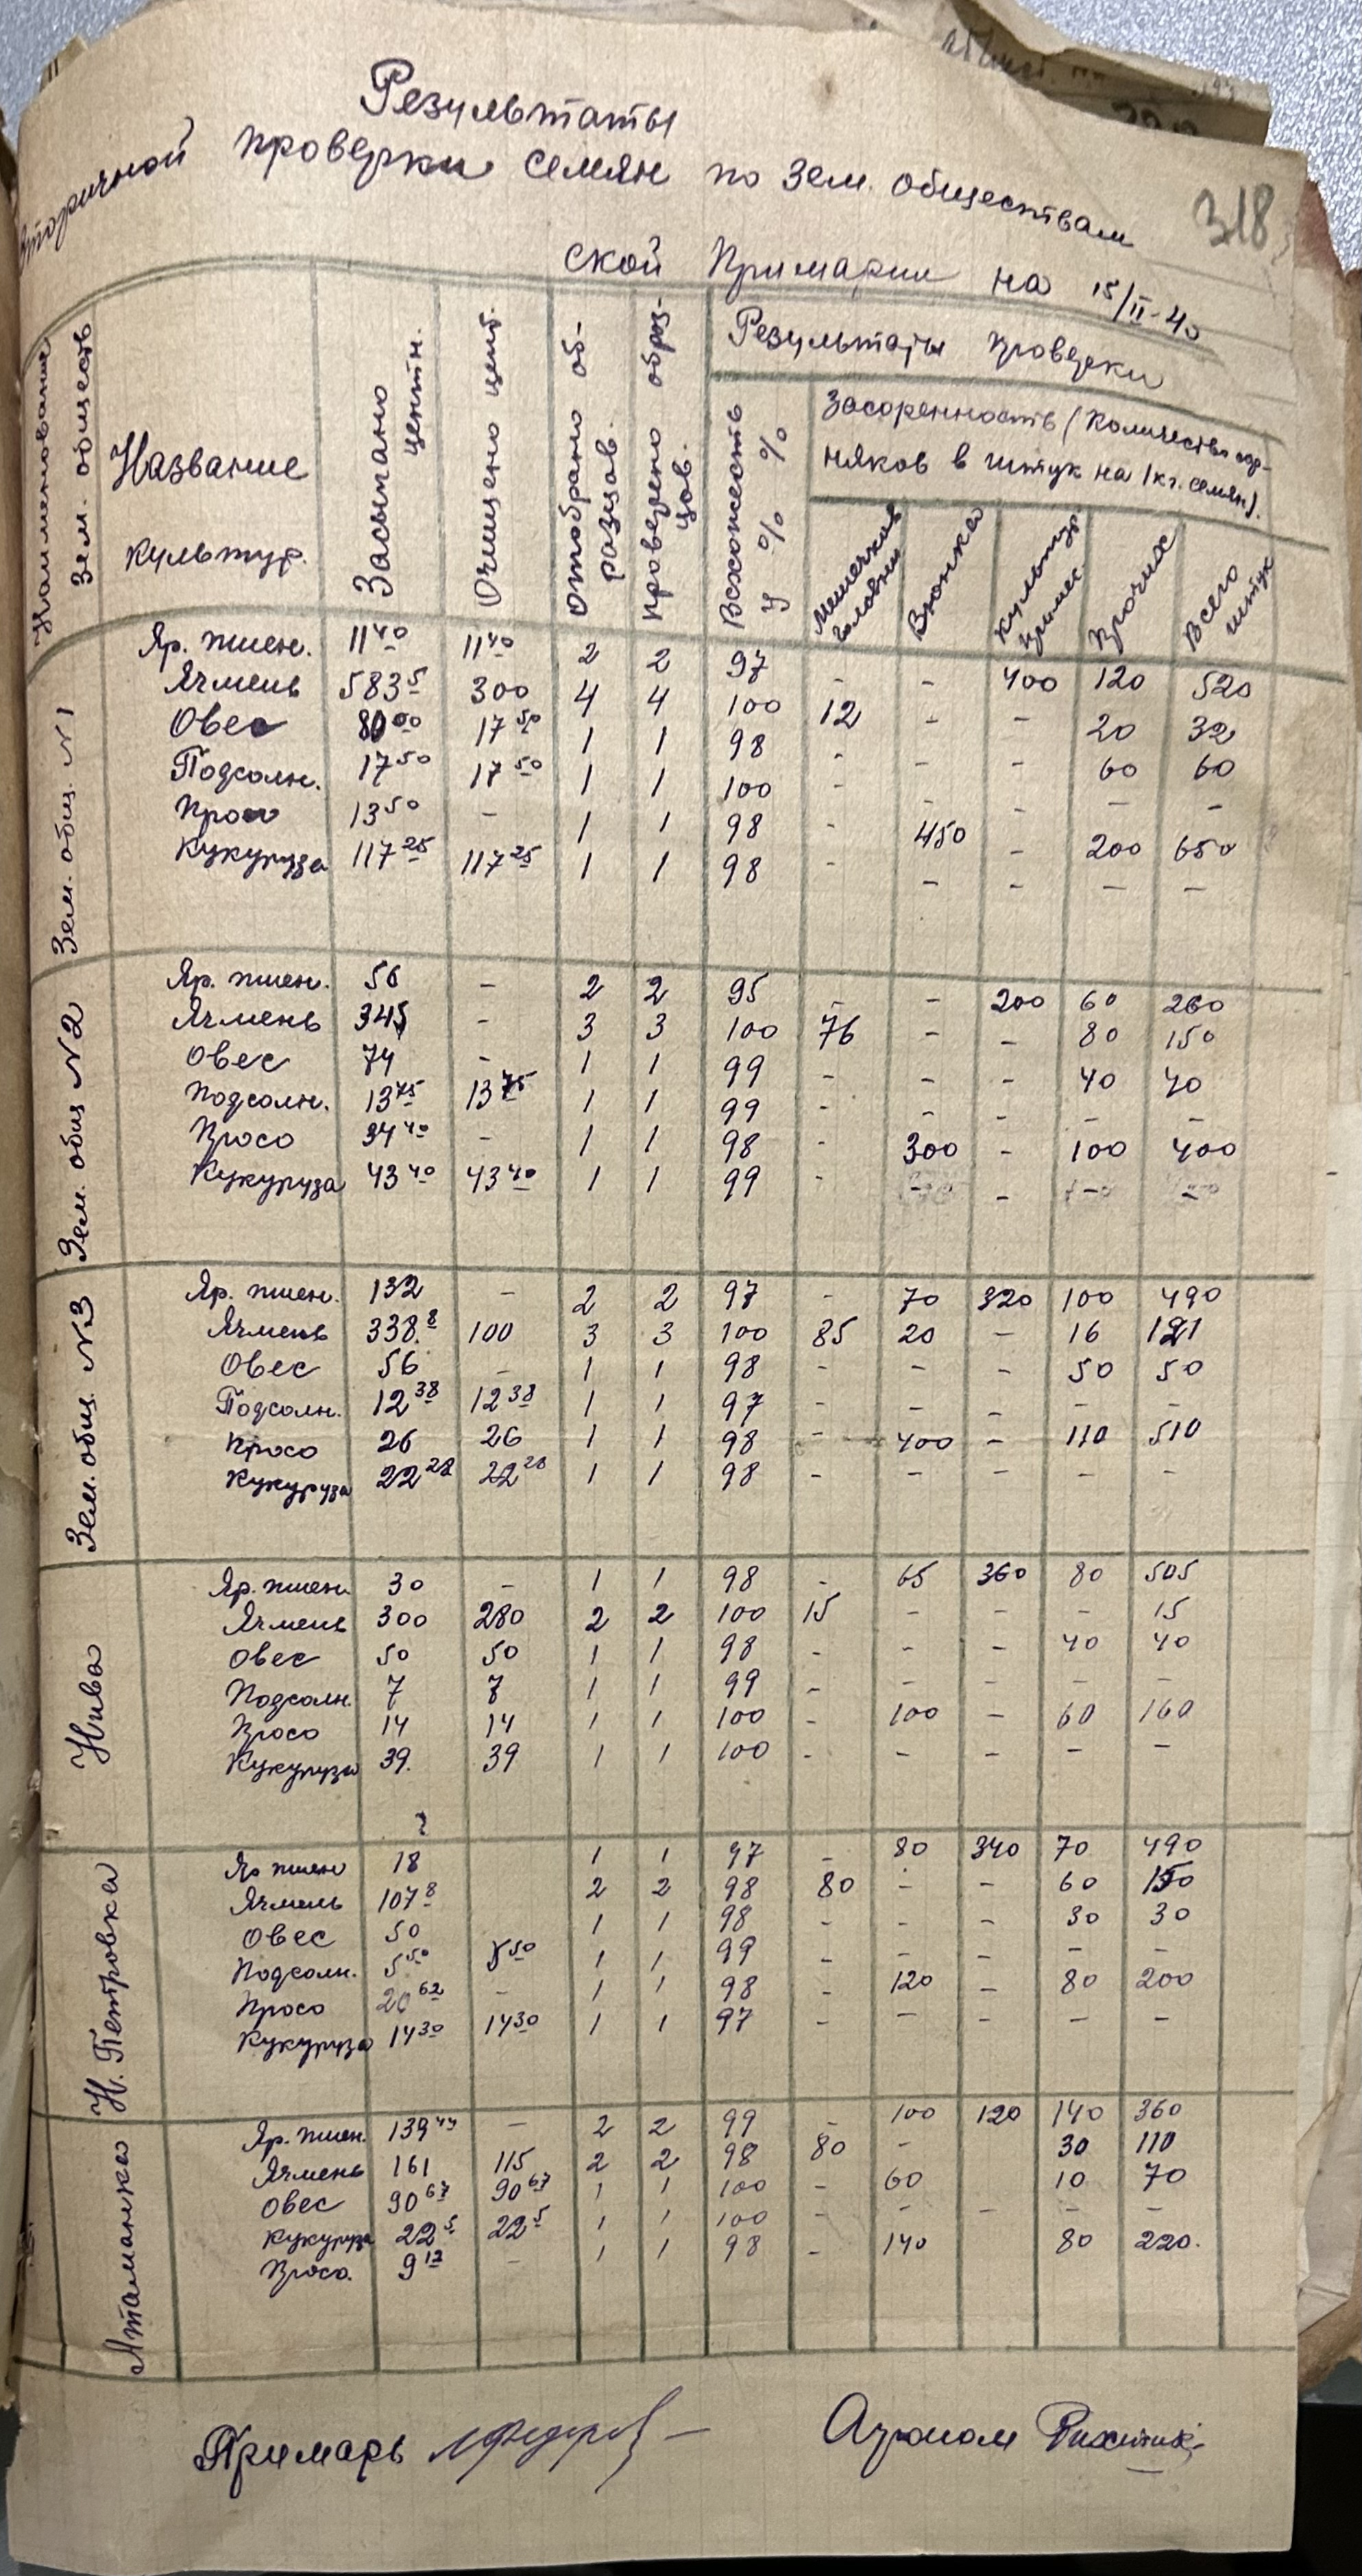 Результаты
вторичной проверки семян по зем. обществам
318
ской Примарии на 15/II-40
Наименование зем. обществ
Название культур.
Засыпано центн.
Очищено цент.
Отобрано образцов.
Проверено образцов.
Результаты проверки
Всхожесть у % %
Засоренность (количество сорняков в штук на 1 кг. семян).
Мешечков головни
Вюнка
Культур примес.
Прочих
Всего штук
Зем. общ. N 1
Яр. пшен. 11 40 11 40 2 2 97 - - 400 120 520
Ячмень 583 5 300 4 4 100 12 - - 20 32
Овес 80 00 17 50 1 1 98 - - - 60 60
Подсолн. 17 50 17 50 1 1 100 - - - - -
Просо 13 50 - 1 1 98 - 450 - 200 650
Кукуруза 117 25 117 25 1 1 98 - - - - -
Зем. общ N 2
Яр. пшен. 56 - 2 2 95 - - 200 60 260
Ячмень 345 - 3 3 100 76 - - 80 150
Овес 74 - 1 1 99 - - - 40 40
Подсолн. 13 75 13 75 1 1 99 - - - - -
Просо 34 40 - 1 1 98 - 300 - 100 400
Кукуруза 43 40 43 40 1 1 99 - - - - -
Зем. общ. N 3
Яр. пшен. 132 - 2 2 97 - 70 320 100 490
Ячмень 338. 8 100 3 3 100 85 20 - 16 121
Овес 56 - 1 1 98 - - - 50 50
Подсолн. 12 38 12 38 1 1 97 - - - - -
Просо 26 26 1 1 98 - 400 - 110 510
Кукуруза 22 28 22 28 1 1 98 - - - - -
Нива
Яр. пшен. 30 - 1 1 98 - 65 360 80 505
Ячмень 300 280 2 2 100 15 - - - 15
Овес 50 50 1 1 98 - - - 40 40
Подсолн. 7 7 1 1 99 - - - - -
Просо 14 14 1 1 100 - 100 - 60 160
Кукуруза 39. 39 1 1 100 - - - - -
Н. Петровка
Яр пшен 18 1 1 97 - 80 340 70 490
Ячмень 107 8 2 2 98 80 - - 60 150
Овес 50 1 1 98 - - - 30 30
Подсолн. 5 50 5 50 1 1 99 - - - - -
Просо 20 62 - 1 1 98 - 120 - 80 200
Кукуруза 14 30 14 30 1 1 97 - - - - -
Атаманка
Яр. пшен. 139 44 - 2 2 99 - 100 120 140 360
Ячмень 161 115 2 2 98 80 - 30 110
Овес 90 67 90 67 1 1 100 - 60 10 70
Кукуруза 22 5 22 5 1 1 100 - - - - -
Просо. 9 12 - 1 1 98 - 140 80 220.
Примарь Федоров
Агроном